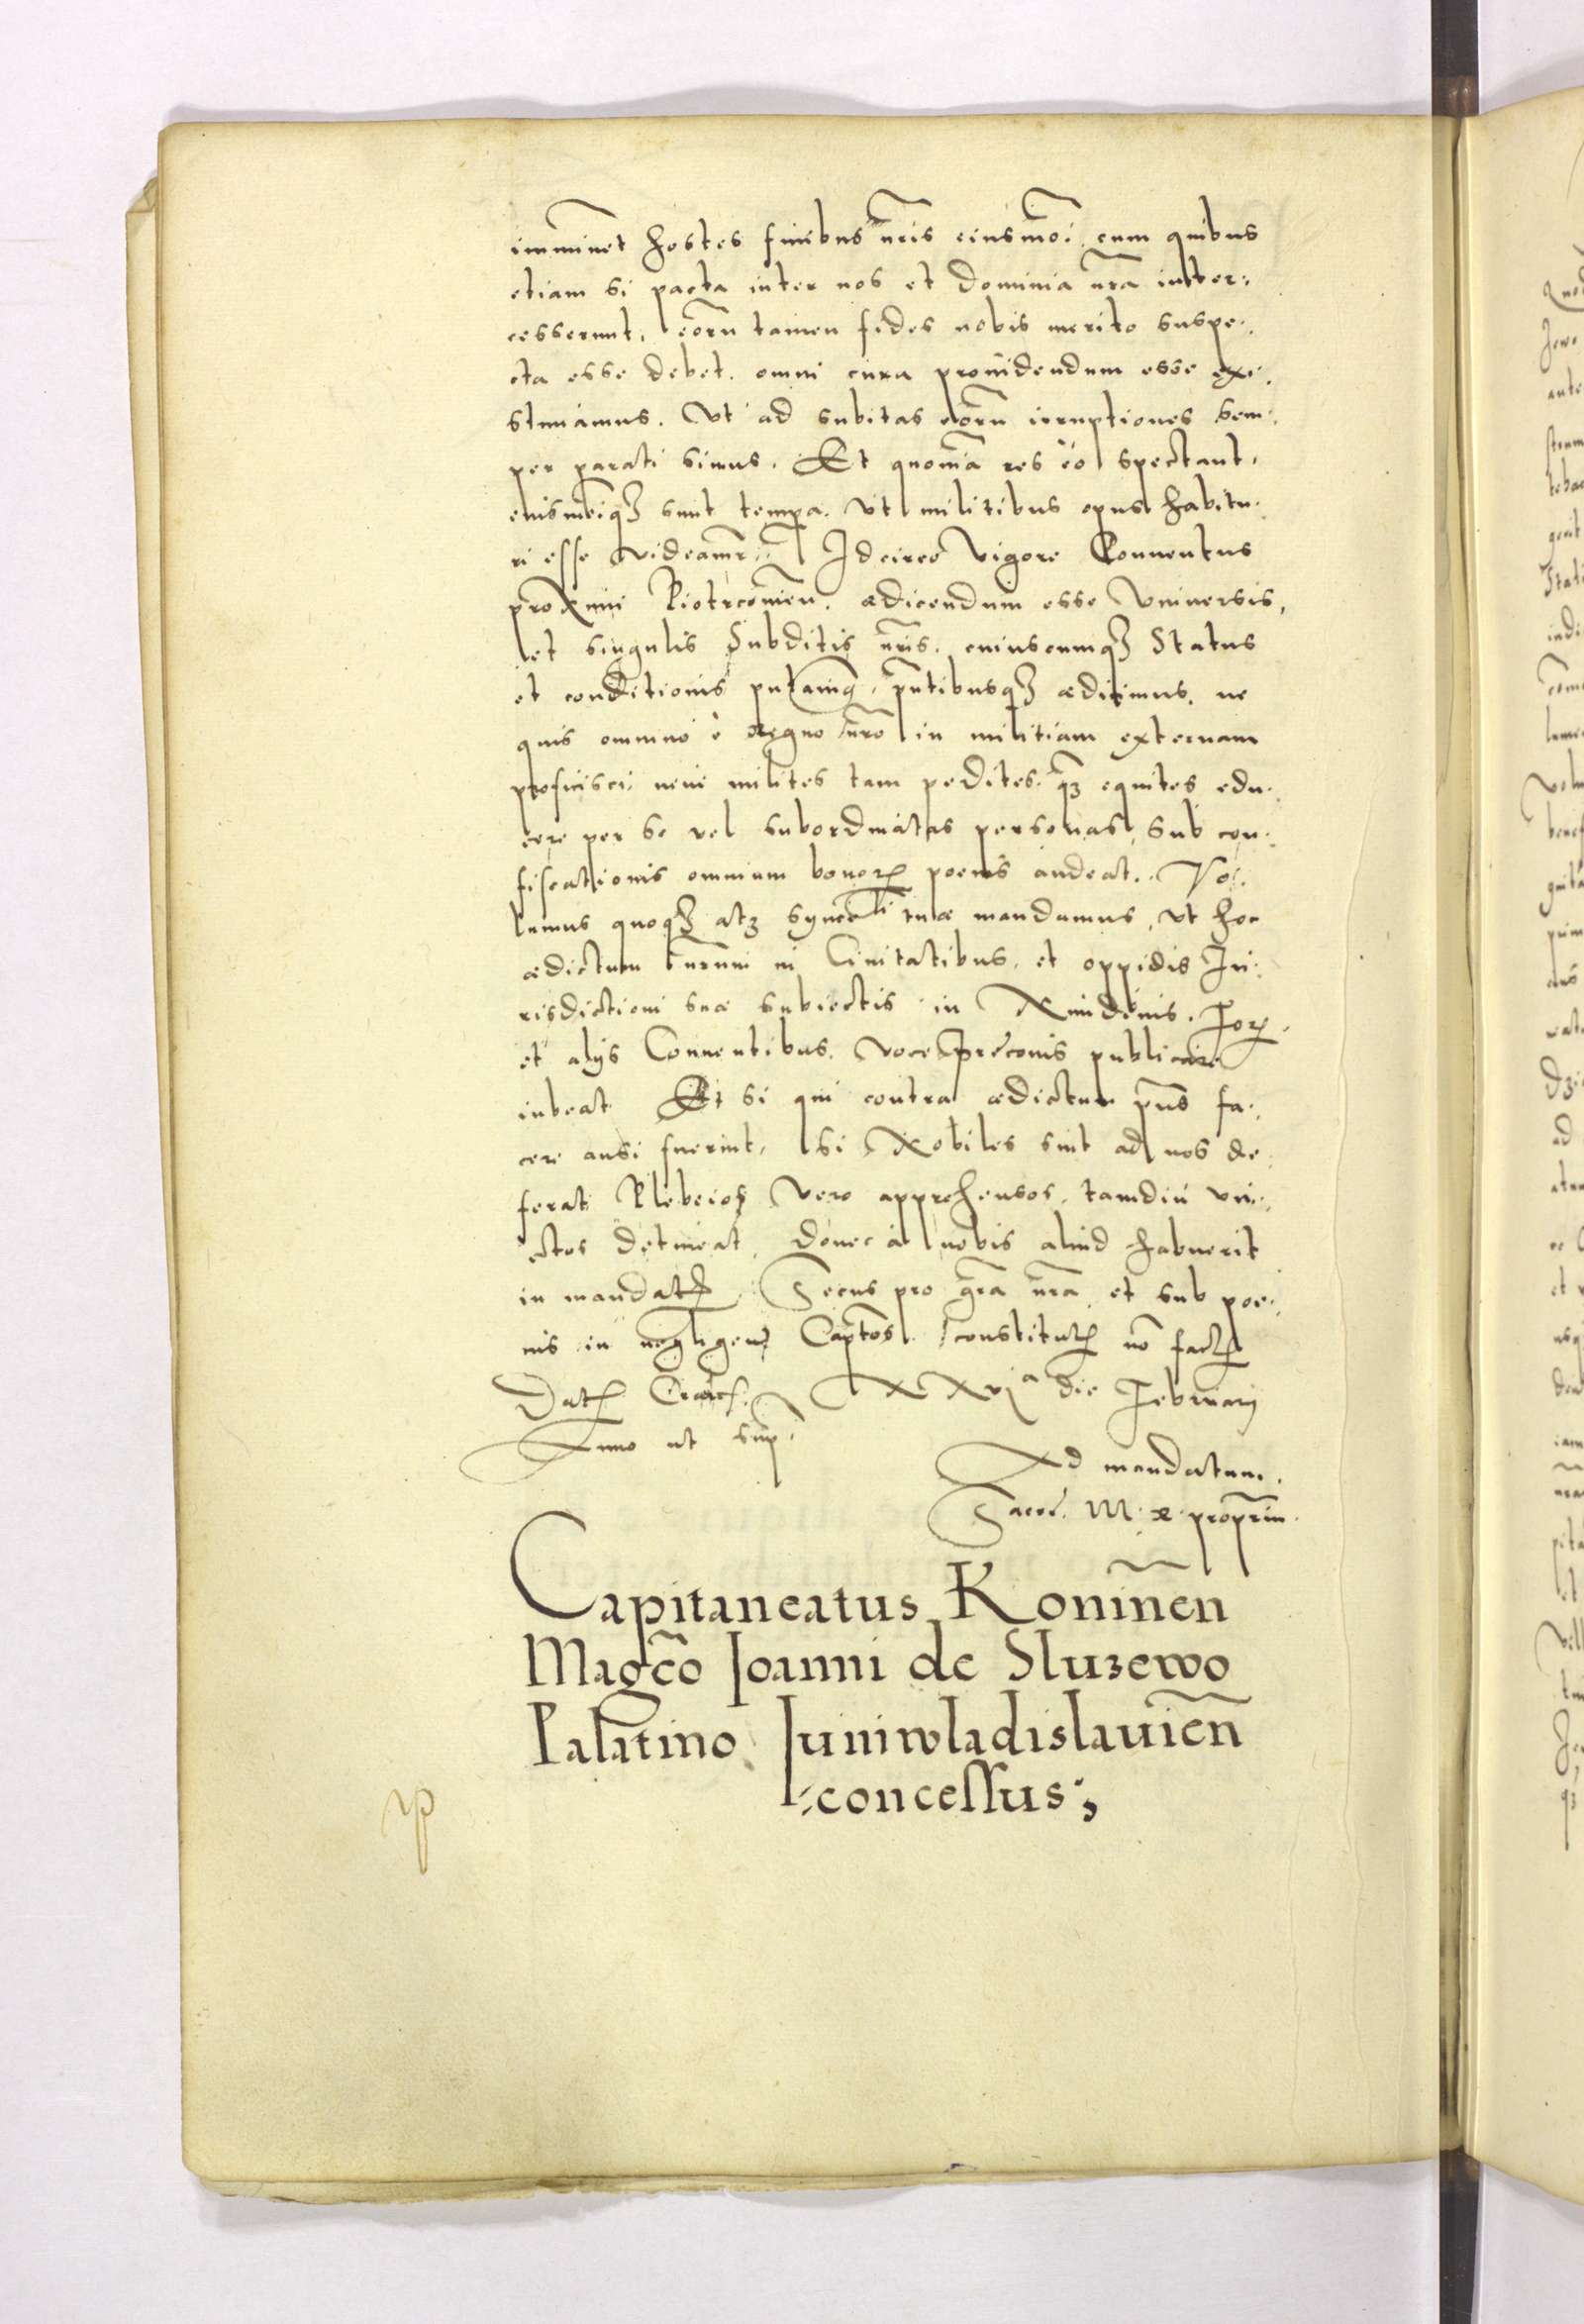 imminet hostes finibus nr̃is eiusmõi cum quibus
etiam si pacta inter nos et dominia nr̃a inter:
cesserunt, eorũ tamen fides nobis merito suspe:
cta esse debet. omni cura prouidendum esse exi:
stimamus. Vt ad subitas eorũ irruptiones sem:
per parati simus. Et quoniã res eo spectant,
eiusmõiq3 sunt tempa. vt militibus opus habitu:
ri esse videamr̃. Idcirco vigore Conuentus
proximi Piotrcouieñ. ædicendum esse vniuersis,
et singulis Subditis nr̃is. cuiuscumq3 Status
et conditionis putauimq̃, pñtibusq3 ædicimus. ne
quis omnino è regno nr̃o in militiam externam
proficisci, neue milites tam pedites. q̃3 equites edu:
cere per se vel subordinatas personas, sub con:
fiscationis omnium bonor̃ poenis audeat. Vo:
lumus quoq3 atq3 tuæ mandamus, vt hoc
ædictum nr̃um in Ciuitatibus. et oppidis Iu:
risdictioni suæ subiectis in Nundinis. For̃
et alijs Conuentibus. voce Preconis publicare
iubeat. Et si qui contra ædictum pñs fa:
cere ausi fuerint, si Nobiles sint ad nos de:
ferat. Plebeios vero apprehensos. tamdiu vin:
ctos detineat, donec à nobis aliud habuerit
in mandat̃. Secus pro gr̃a nr̃a et sub poe:
nis in negligeñ Captos. constitut̃ nõ fact̃
Dat̃ Crac̃. XXvjª die Februarij
Anno ut sup̃.
Ad mandatum.
Sacrẽ. M. R. propriũ.
Capitaneatus Koniñen
Magc̃o Joanni de Sluzewo
Palatino Juniwladislauieñ
concessus;